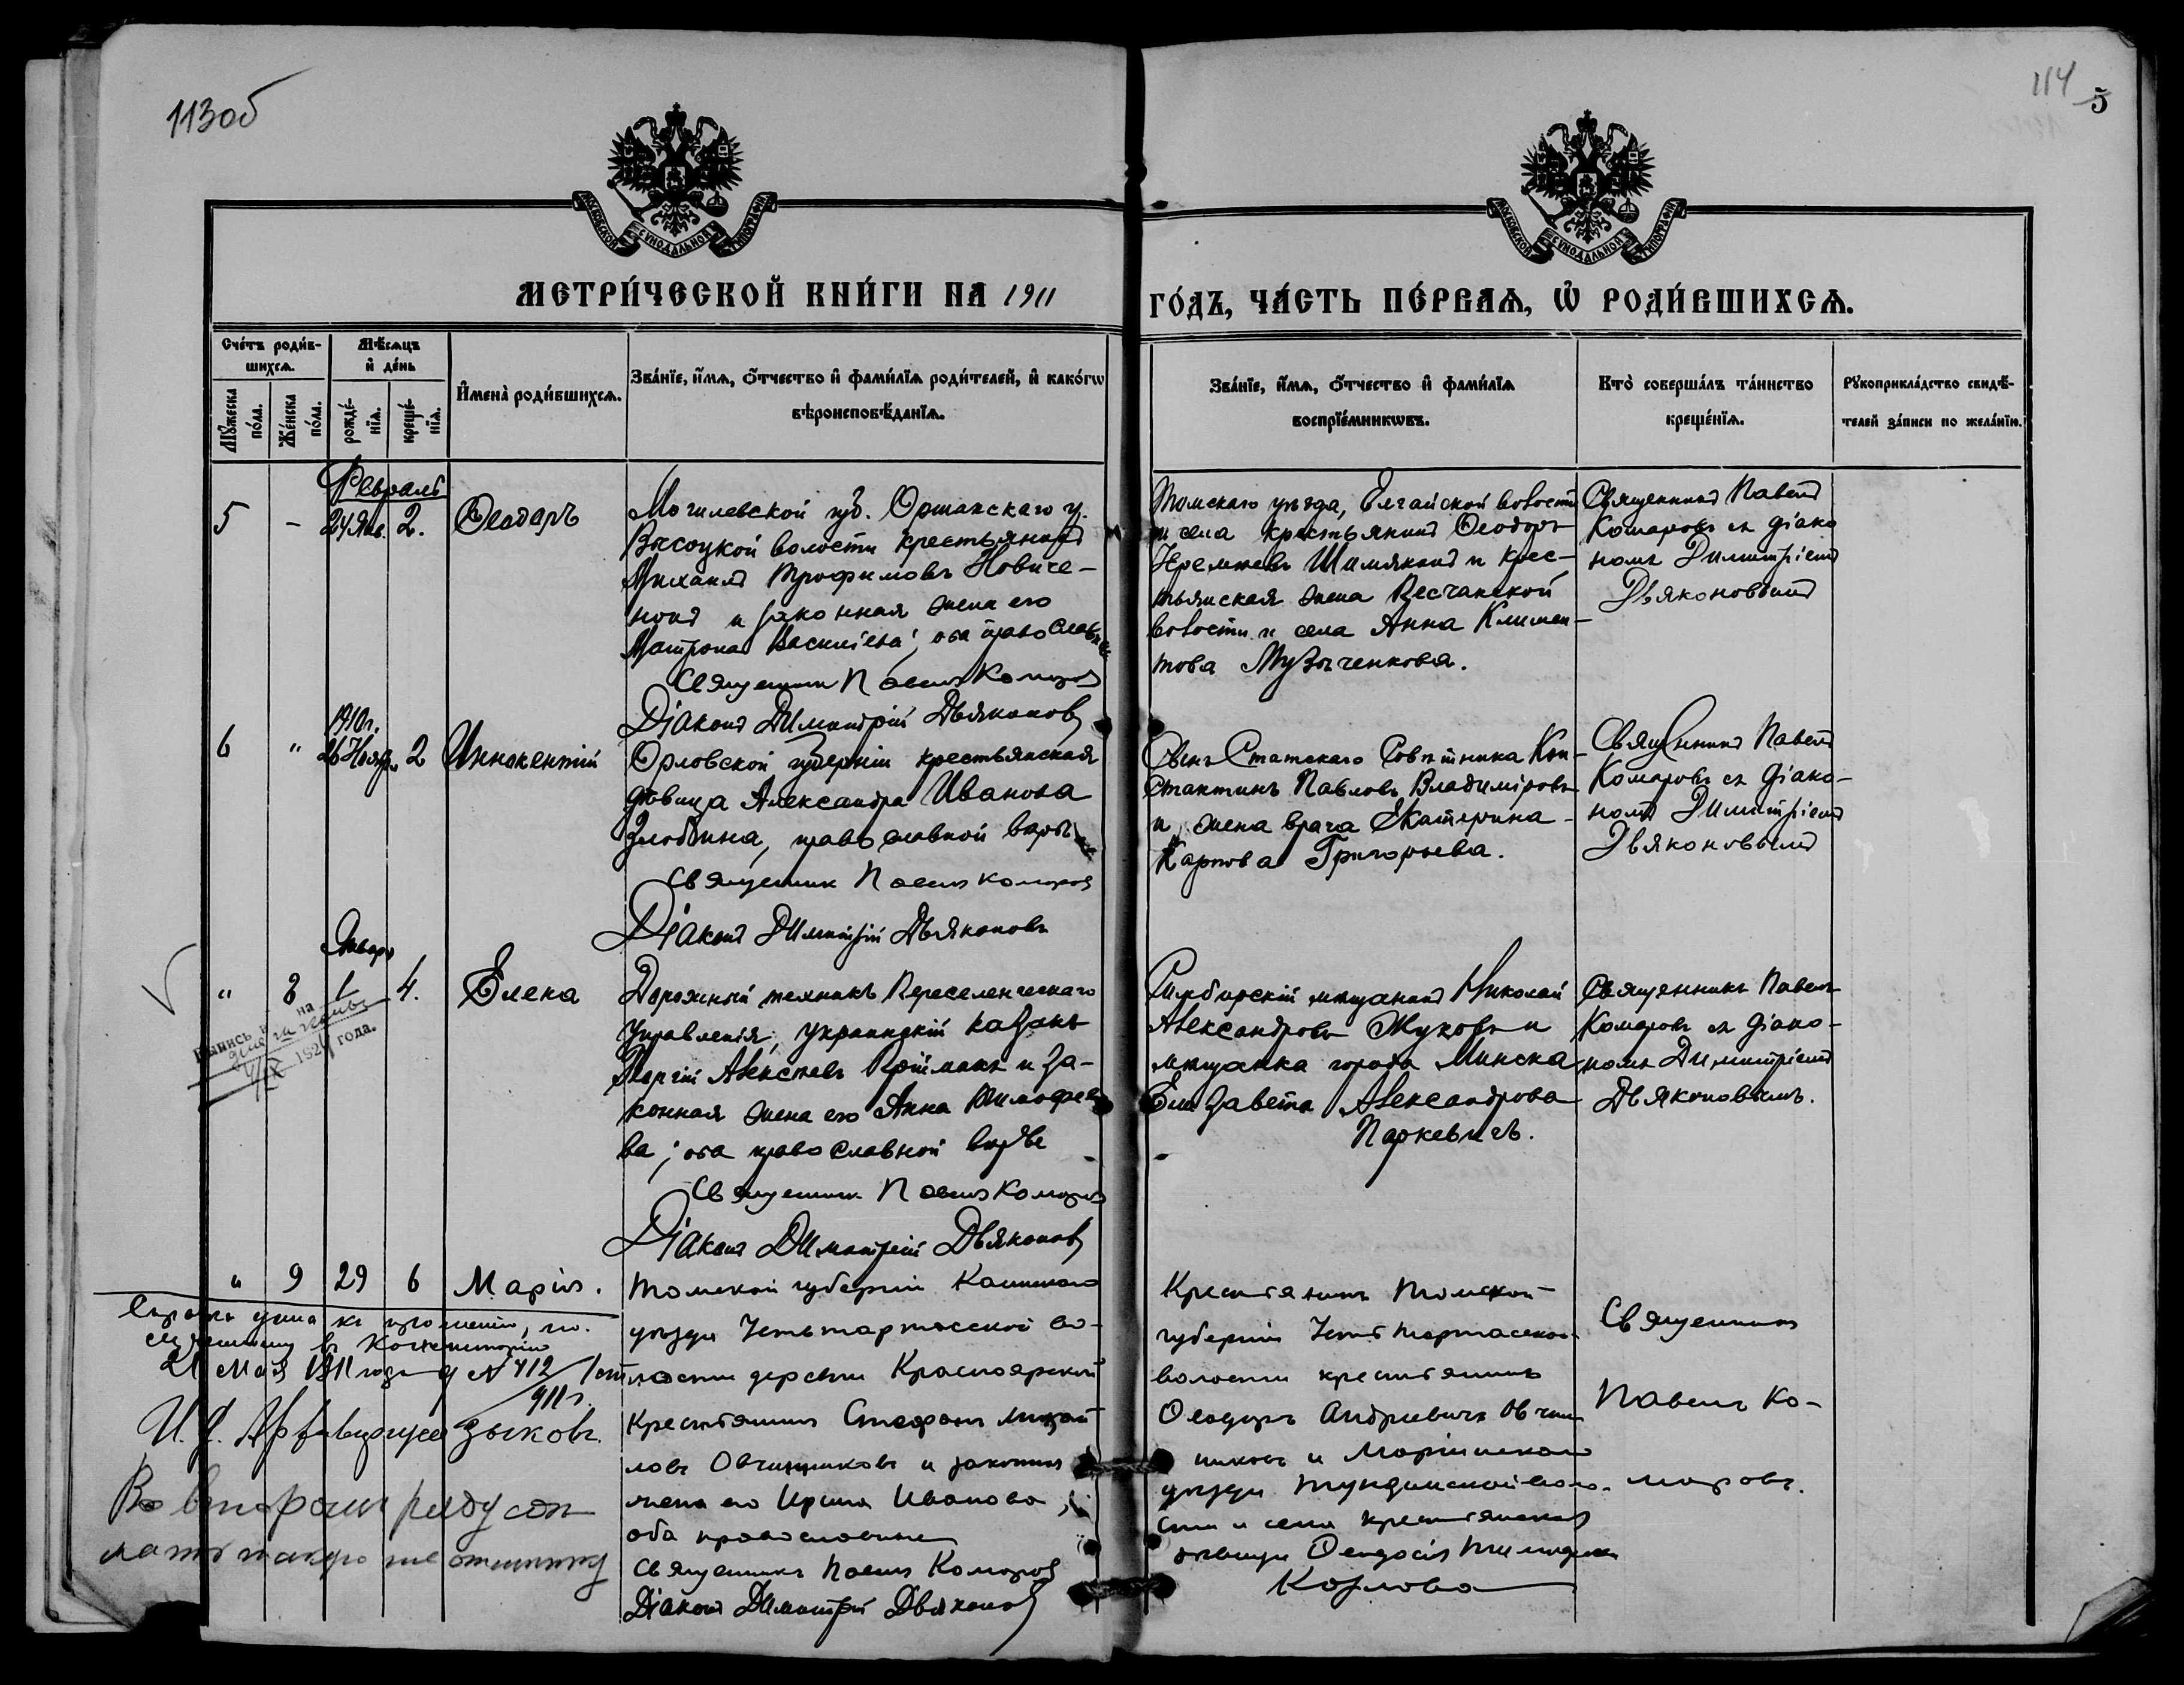 113об
114
5
МОСКОВСКОЙ СѴНОДАЛЬНОЙ ТИПОГРАФІИ
МОСКОВСКОЙ СѴНОДАЛЬНОЙ ТИПОГРАФІИ
МЕТРИ́ЧЕСКОЙ КНИ́ГИ НА 1911
ГО́ДЪ, ЧА́СТЬ ПЕ́РВАѦ, Ѽ РОДИ́ВШИХСѦ.
Сче́тъ роди́в-
шихсѧ.
Мѣ́сѧцъ
и҆ де́нь
Мꙋ́жеска
по́ла.
Же́нска
по́ла.
рожде́-
нїѧ.
креще́-
нїѧ.
И҆мена̀ роди́вшихсѧ.
Зва́нїе, и҆́мѧ, ѻ҆́тчество и҆ фами́лїѧ роди́телей, и҆ како́гѡ
вѣроисповѣ́данїѧ.
Зва́нїе, и҆́мѧ, ѻ҆́тчество и҆ фами́лїѧ
воспрїе́мникѡвъ.
Кто̀ соверша́лъ та́инство
креще́нїѧ.
Рꙋкоприкла́дство свидѣ́-
телей за́писи по жела́нїю.
Февраль
5 - 24 Янв. 2. Ѳеодоръ
Могилевской губ. Оршанскаго у.
Высоцкой волости крестьянинъ
Михаилъ Трофимовъ Новиче-
нокъ и законная жена его
Матрона Василіева; оба православные
Священникъ Павелъ Комаровъ
Діаконъ Димитрій Дьяконовъ
Томскаго уѣзда, Елгайской волости
и села крестьянинъ Ѳеодоръ
Шимякинъ и крес-
тьянская жена Песчанской
волости и села Анна Климен-
това Музыченкова.
Священникъ Павелъ
Комаровъ съ діако
номъ Димитріемъ
Дьяконовымъ
1910г.
6 " 26 Нояб. 2 Иннокентій
Орловской губерніи крестьянская
дѣвица Александра Иванова
Злобина, православной вѣры
Священникъ Павелъ Комаровъ
Діаконъ Димитрій Дьяконовъ
Сынъ Статскаго Совѣтника Кон-
стантинъ Павловъ Владиміровъ
и жена врача Екатерина
Карпова Григорьева.
Священникъ Павелъ
Комаровъ съ діако-
номъ Димитріемъ
Дьяконовымъ
Январь
" 8 1 4. Елена
Дорожный техникъ Переселенческаго
Управленія, казакъ
Георгій Алексѣевъ и за-
конная жена его Анна Тимофее
ва; оба православной вѣры
Священникъ Павелъ Комаровъ
Діаконъ Димитрій Дьяконовъ
Симбирскій мѣщанинъ Николай
Александровъ Жуковъ и
мѣщанка города Минска
Елизавета Александрова
Паркевичъ.
Священникъ Павелъ
Комаровъ съ діако-
номъ Димитріемъ
Дьяконовымъ.
года.
" 9 29 6 Марія.
Томской губерніи Каинскаго
уѣзда Устьтартасской во-
лости деревни Красноярской
крестьянинъ Стефанъ Михай
ловъ Овчинниковъ и законная
жена его Ирина Иванова,
оба православные
Священникъ Павелъ Комаровъ
Діаконъ Димитрій Дьяконовъ
Крестьянинъ Томской
губерніи Устьтартасской
волости крестьянинъ
Ѳеодоръ Андреевичъ Овчин
никовъ и Маріинскаго
уѣзда Тундинской воло-
сти и села крестьянская
дѣвица Ѳеодосія
Козлова
Священникъ
Павелъ Ко-
маровъ.
21 Мая 1911 года № 412
911 г.
И. Д. Архиваріуса Зыковъ.
Во второмъ